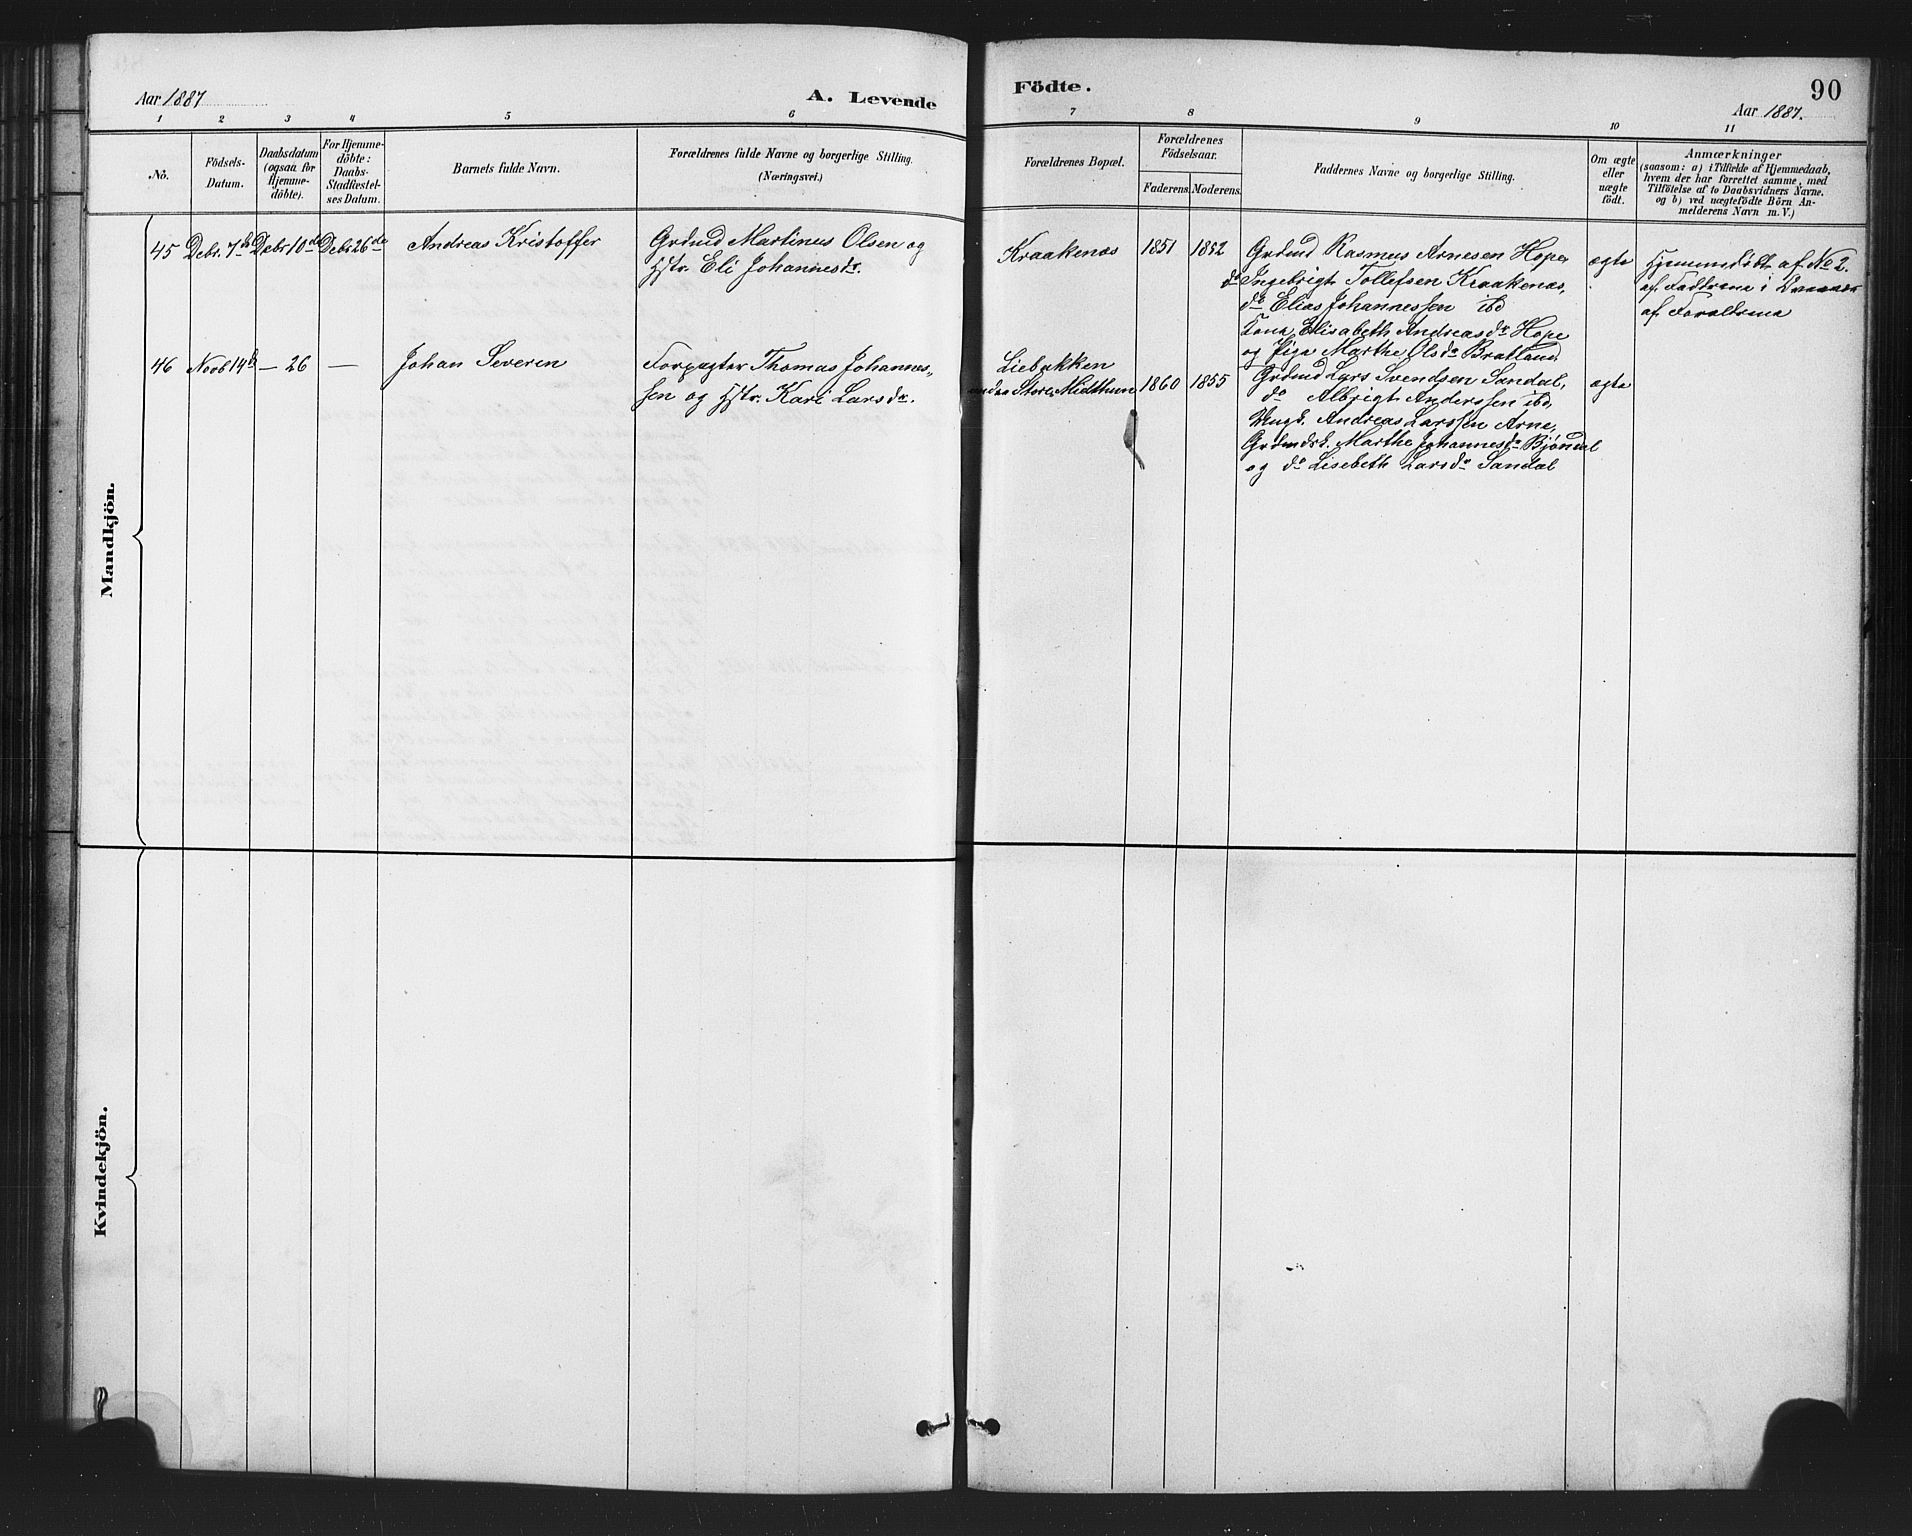 Aar 1887
A. Levende
Födte.
90
Aar 1887.
1 2 3 4 5 6 7 8 9 10 11
No.
Födsels-
Datum.
Daabsdatum
(ogsaa for
Hjemme-
döbte).
For Hjemme-
döbte:
Daabs-
Stadfæstel-
ses Datum.
Barnets fulde Navn.
Forældrenes fulde Navne og borgerlige Stilling.
(Næringsvei.)
Forældrenes Bopæl.
Forældrenes
Födselsaar.
Faderens. Moderens.
Faddernes Navne og borgerlige Stilling.
Om ægte
eller
uægte
födt.
Anmærkninger
(saasom: a) i Tilfælde af Hjemmedaab,
hvem der har forrettet samme, med
Tilföielse af to Daabsvidners Navne.
og b) ved uægtefödte Börn An-
melderens Navn m. V.)
Mandkjön.
45 Debr. 7de Debr 10de Debr 26de Andreas Kristoffer
Grdmd Martinus Olsen og
Hstr. Eli Johannesdr.
Kraakenæs 1851 1852
Grdmd Rasmus Arnesen Hope,
do Ingebrigt Tollefsen Kraakenæs,
do Elias Johannessen ibd
Kona Elisabeth Andreasdr Hope
og Pige Marthe Olsdr Bratland
ægte
Hjemmedøbt af No 2.
af Fadrene i
af Foreldrene
46 Novb 14de — 26 — Johan Severin
Forpagter Thomas Johannes-
sen og Hstr. Kari Larsdr.
Liebakken
under Store Midtthun 1860 1855
Grdmd Lars Svendsen Sandal,
do Albrigt Anderssen ibd,
Ungk. Andreas Larssen Arne,
Grdmdsk. Marthe Johannesdr Bjöndal
og do Lisebeth Larsdr Sandal
ægte
Kvindekjön.